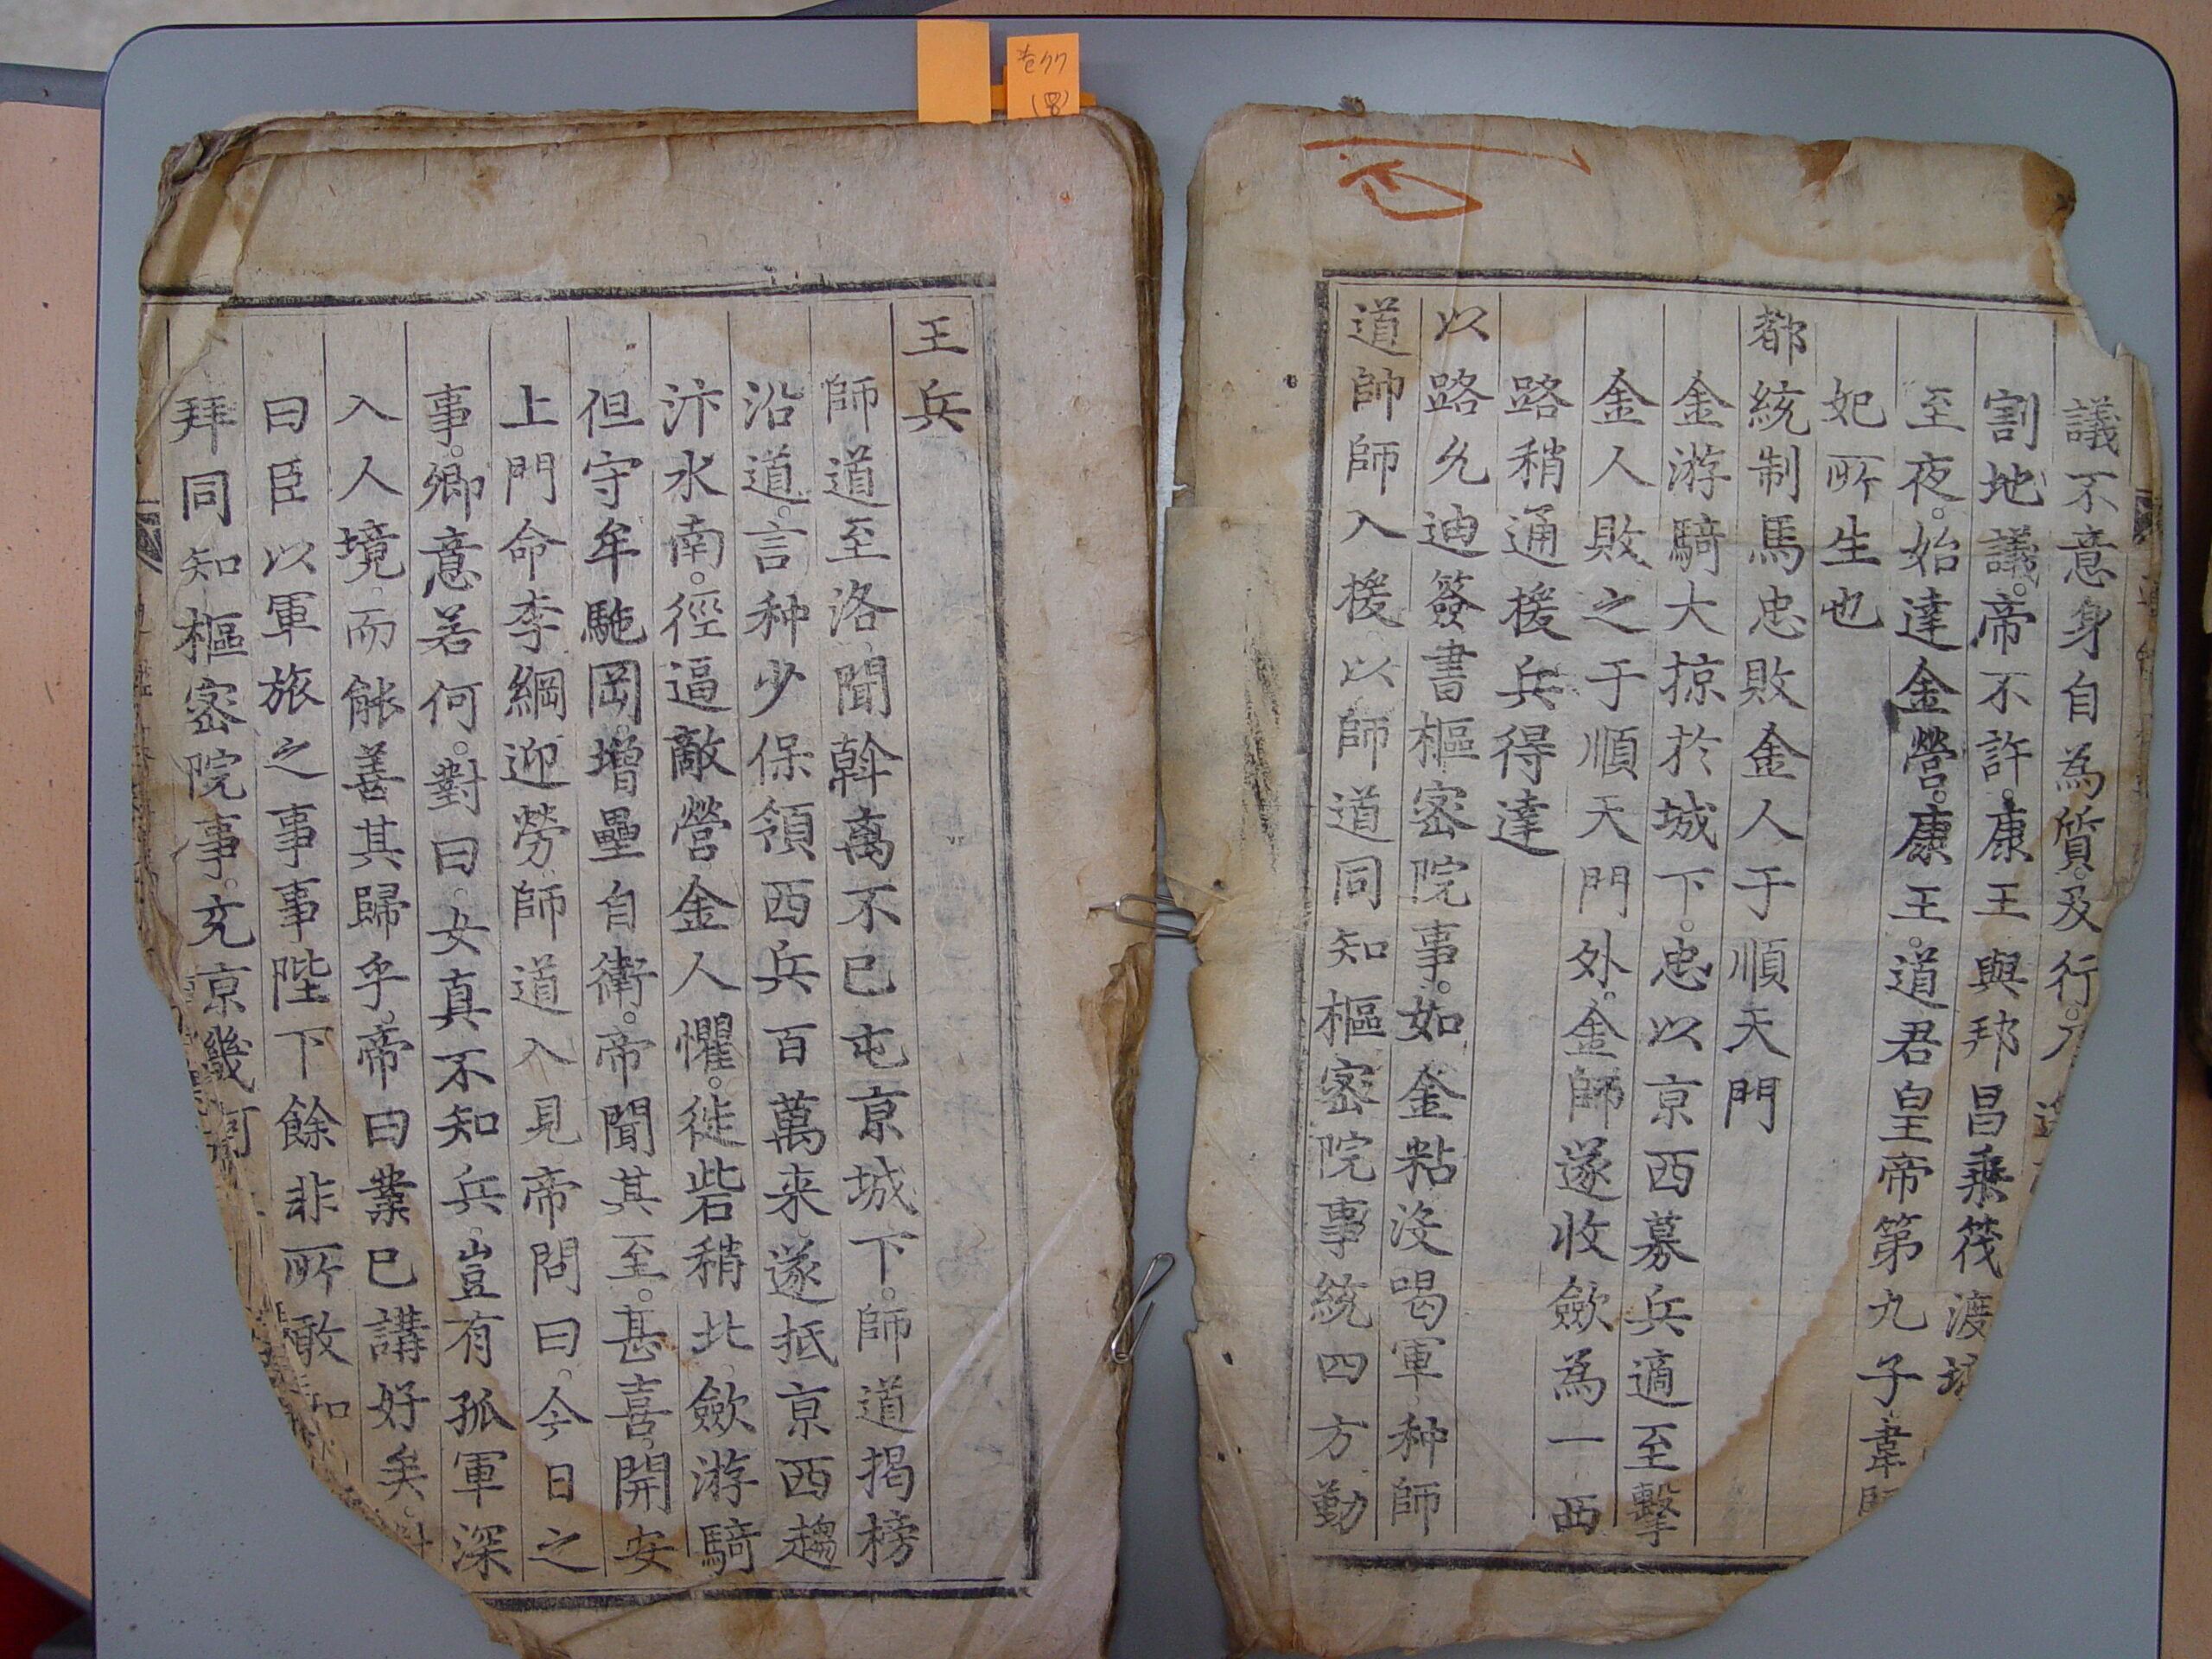 卷77
(호)
議不意身自為質。及行。
割地議。帝不許。康王與邦昌乘筏渡
至夜。始達金營。康王。道君皇帝第九子。韋
妃所生也
都統制馬忠敗金人于順天門
金游騎大掠於城下。忠以京西募兵適至擊
金人敗之于順天門外。金師遂收斂為一西
路稍通援兵得達
以路允迪簽書樞密院事。如金粘沒喝軍。种師
道帥師入援。以師道同知樞密院事統四方勤
王兵
師道至洛。聞斡离不已屯京城下。師道揭榜
沿道。言种少保領西兵百萬来。遂抵京西趨
汴水南。徑逼敵營。金人懼。徙砦稍北。斂游騎
但守牟駞岡。增壘自衛。帝聞其至。甚喜。開安
上門命李綱迎勞。師道入見。帝問曰。今日之
事。卿意若何。對曰。女真不知兵。豈有孤軍深
入人境。而能善其歸乎。帝曰。業已講好矣。對
曰臣以軍旅之事事陛下餘非所敢知
拜同知樞密院事。充京畿河